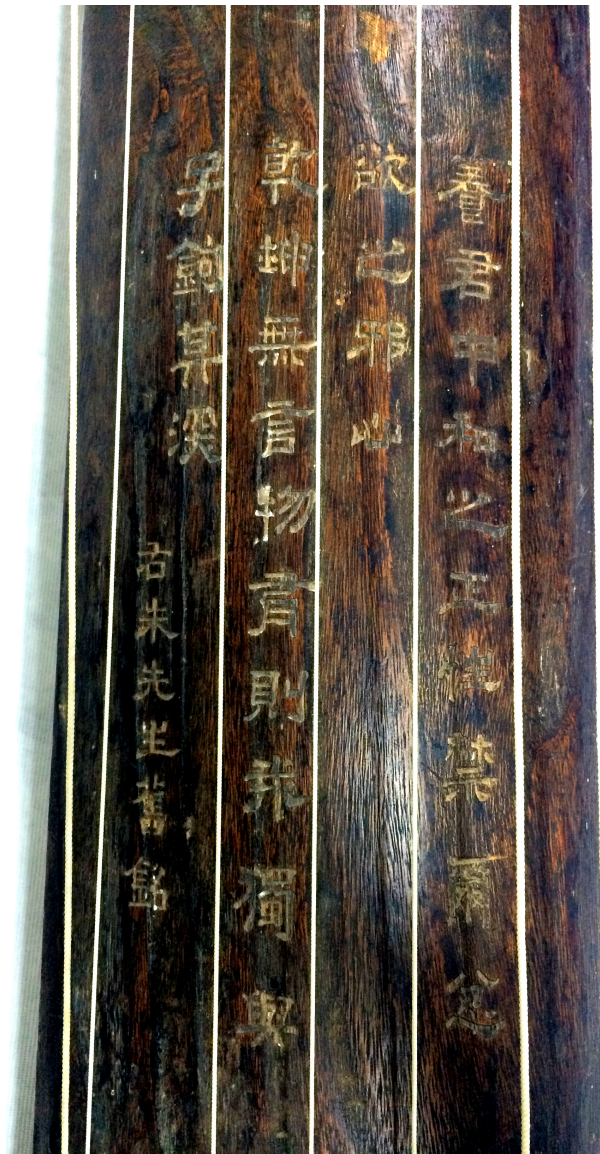 養君中和之正性禁爾忿
欲之邪心
乾坤無言物有則我獨與
子鉤其深
右朱先生舊銘